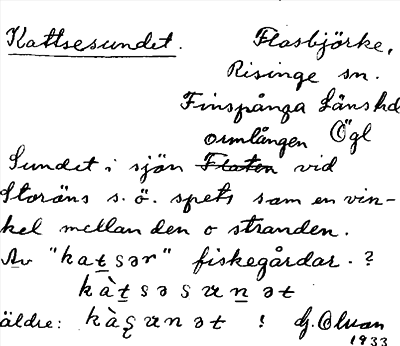 Kattsesundet. Flasbjörke,
Risinge sn.
Finspånga Länshd
ormlången Ögl
Sundet i sjön Flaten vid
Storöns s. ö. spets som en vin-
kel mellan den o stranden.
Av "ka̱tsər" fiskegårdar. ?
kàt̠səsʉn̠ət
äldre: kàşʉnət ! G. Olson
1933